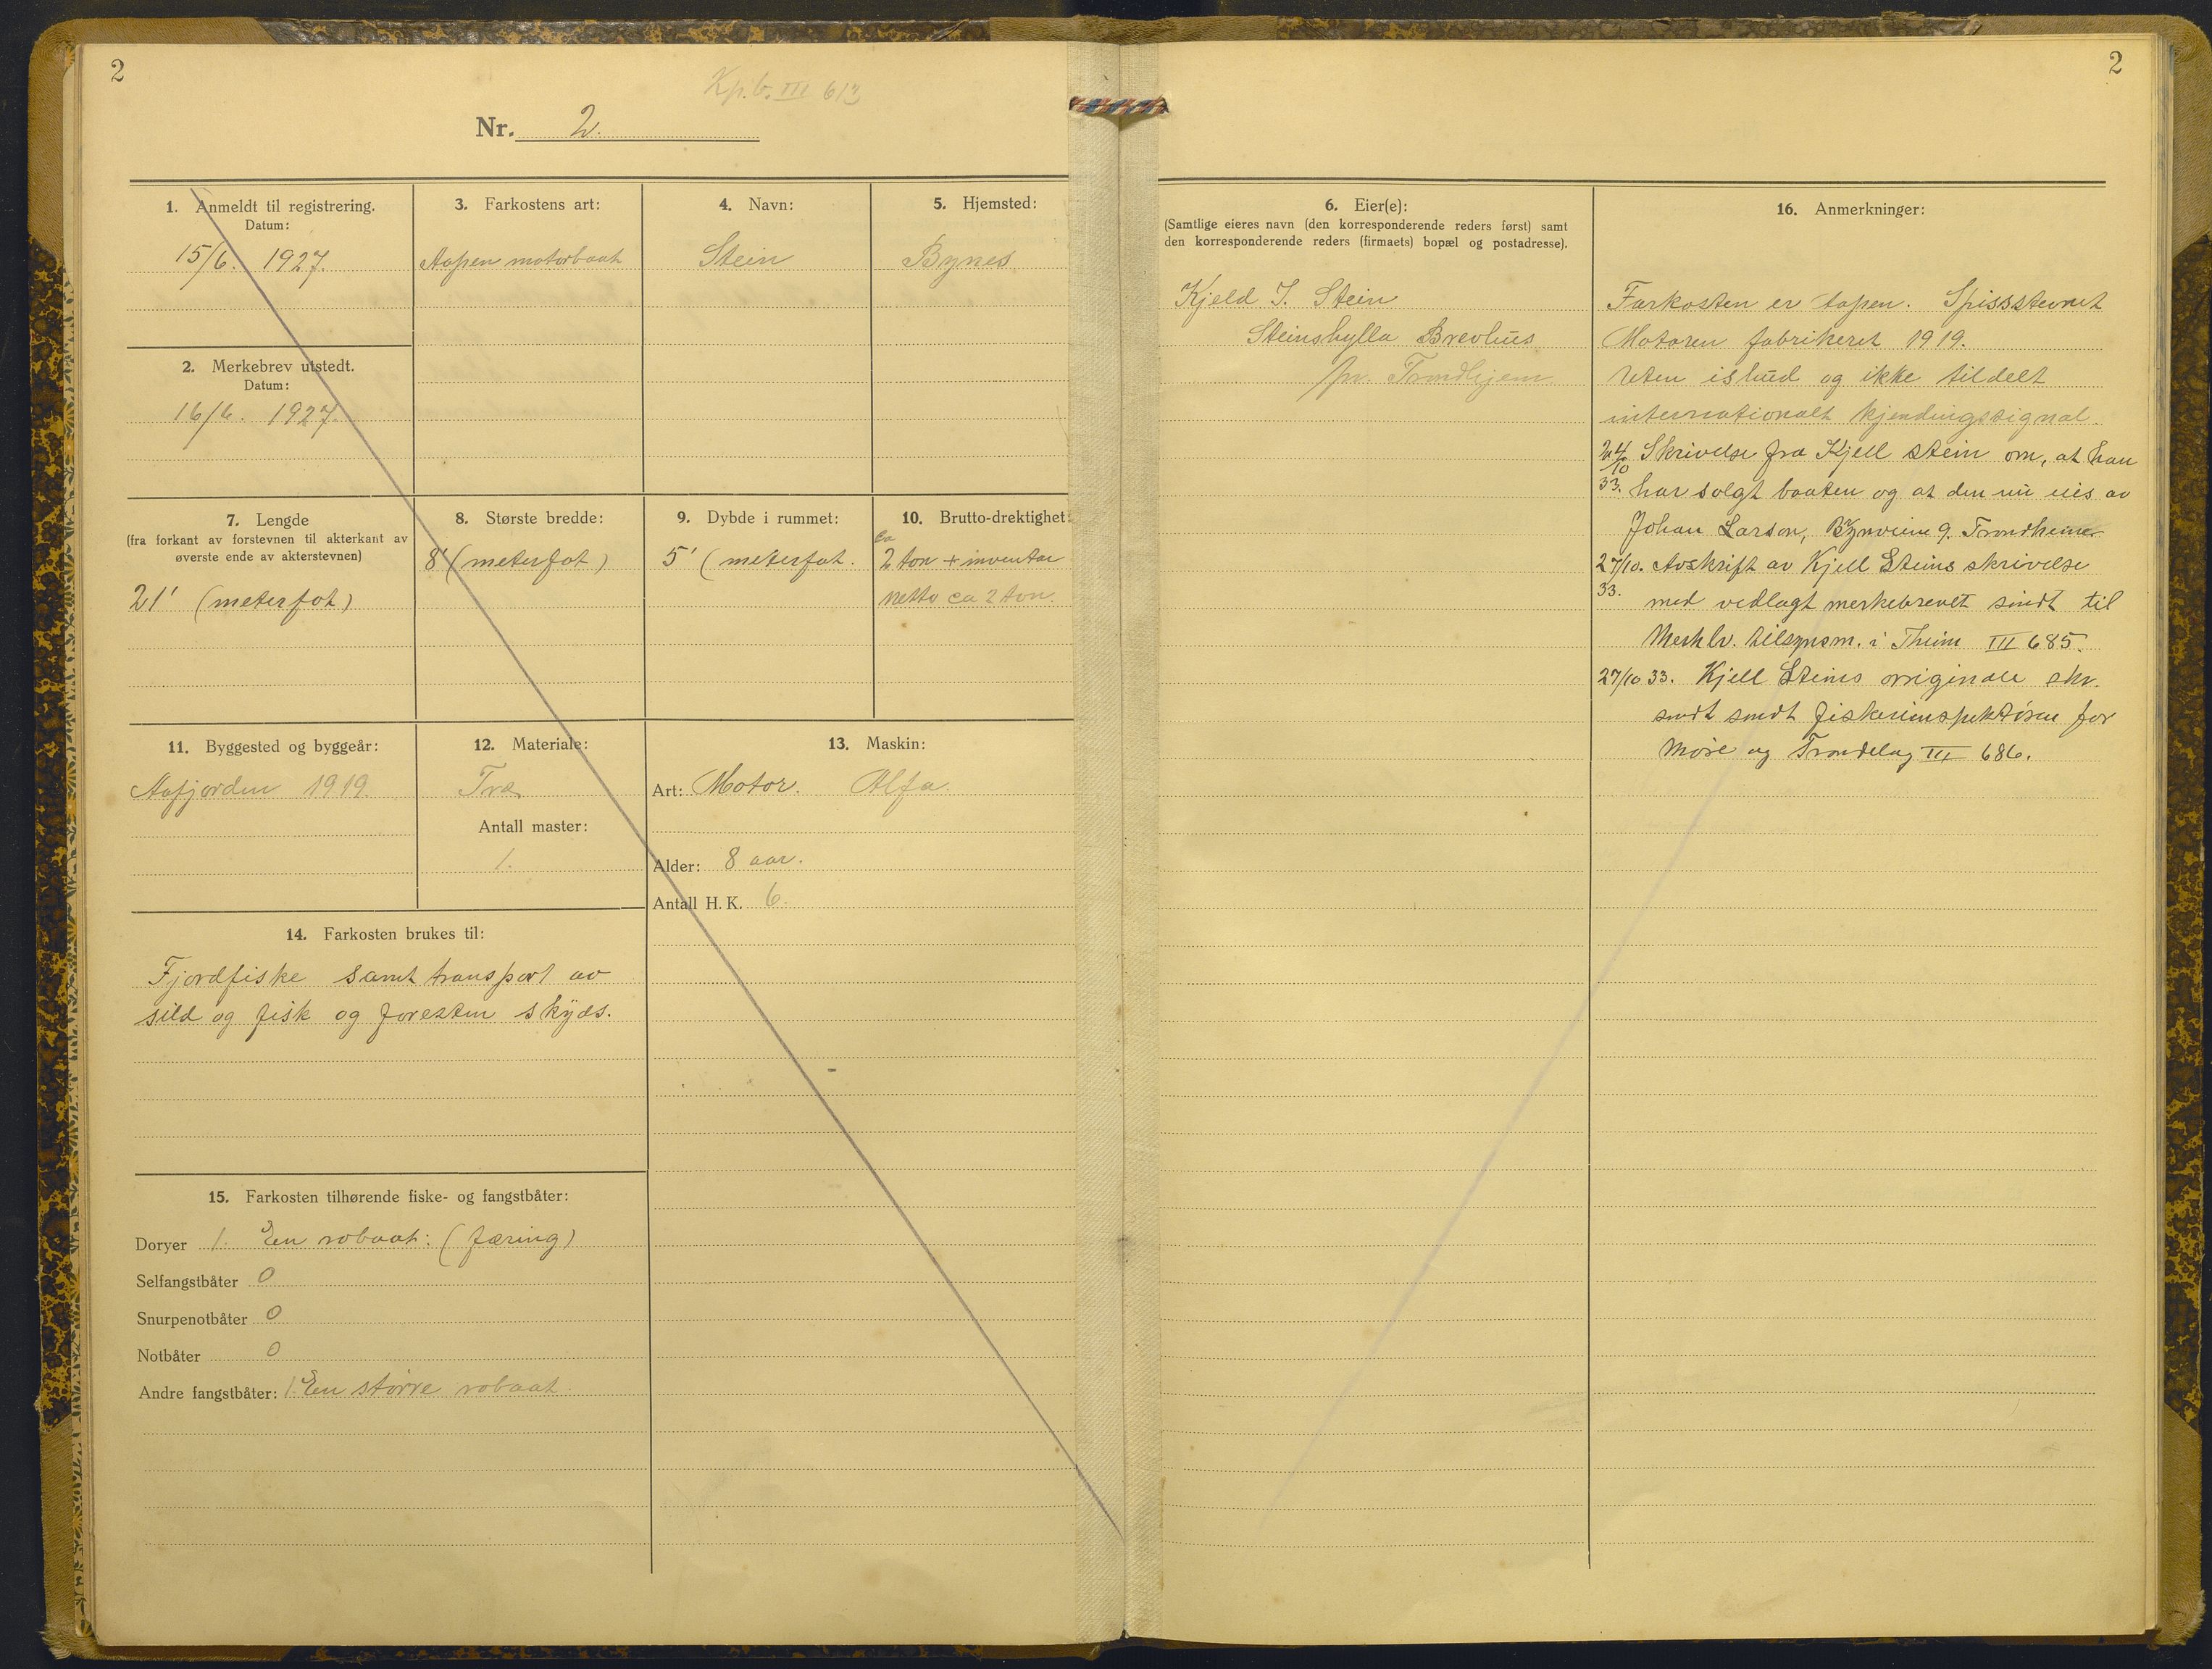 2
Kp.b. III 613
Nr. 2.
1. Anmeldt til registrering.
Datum:
15/6. 1927.
2. Merkebrev utstedt.
Datum:
16/6. 1927.
3. Farkostens art:
Aapen motorbaat
4. Navn:
Stein
5. Hjemsted:
Bynes
7. Lengde
(fra forkant av forstevnen til akterkant av
øverste ende av akterstevnen)
21' (meterfot)
8. Største bredde:
8' (meterfot)
9. Dybde i rummet:
5' (meterfot.
10. Brutto-drektighet:
ca
2 ton + inventar
netto ca 2 ton.
11. Byggested og byggeår:
Aafjorden 1919.
12. Materiale:
Træ
Antall master:
1.
13. Maskin:
Art: Motor. Alfa.
Alder: 8 aar.
Antall H. K. 6.
14. Farkosten brukes til:
Fjordfiske samt transport av
sild og fisk og foresten skyds.
15. Farkosten tilhørende fiske- og fangstbåter:
Doryer 1. En robaat: (færing)
Selfangstbåter 0
Snurpenotbåter 0
Notbåter 0
Andre fangstbåter: 1. En større robaat.
2
6. Eier(e):
(Samtlige eieres navn (den korresponderende reders først) samt
den korresponderende reders (firmaets) bopæl og postadresse).
Kjeld J. Stein
Steinshylla Brevhus
pr. Trondhjem.
16. Anmerkninger:
Farkosten er aapen. Spissstevnet
Motoren fabrikeret 1919.
Uten ishud og ikke tildelt
internationalt kjendingssignal.
24/10 Skrivelse fra Kjell Stein om, at han
33. har solgt baaten og at den nu eies av
Johan Larson, Byneset g. Trondheim
27/10. Avskrift av Kjell Steins skrivelse
33. med vedlagt merkebrevet sendt til
Merkelv. tilsynsm. i Theim III 685.
27/10 33. Kjell Steins originale skr.
sendt sendt fiskeriinspektøren for
Møre og Trøndelag III 686.